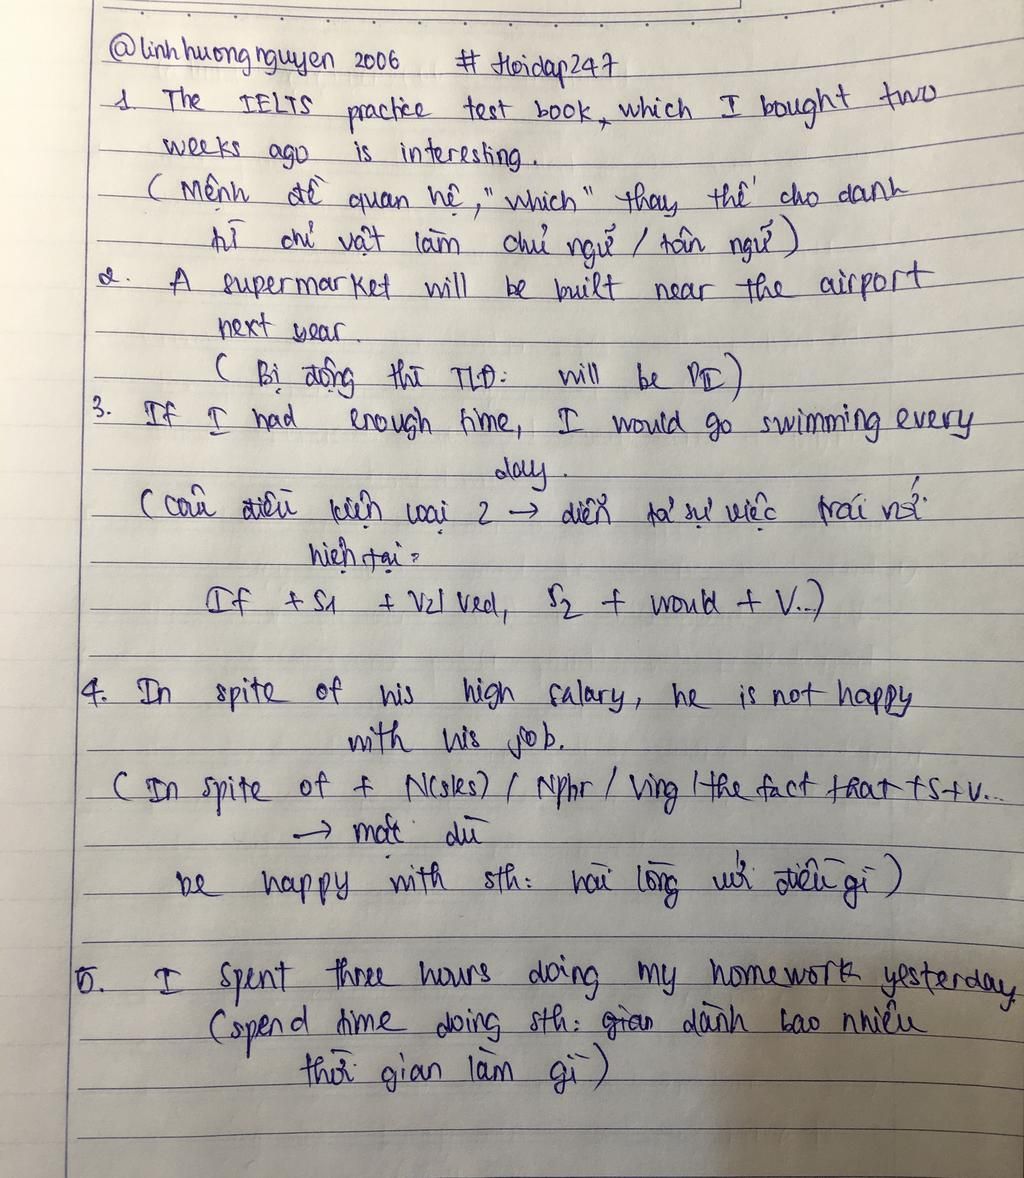 @linhhuongnguyen 2006 # Hoidap247
1 The IELTS practice test book, which I bought two
weeks ago is interesting.
(Mệnh đề quan hệ, "which" thay thế cho danh
từ chỉ vật làm chủ ngữ / tân ngữ)
2. A supermarket will be built near the airport
next year.
(Bị động thì TLĐ: will be PII)
3. If I had enough time, I would go swimming every
day.
(Câu điều kiện loại 2 → diễn tả sự việc trái với
hiện tại:
If + S1 + V2/Ved, S2 + would + V..)
4. In spite of his high salary, he is not happy
with his job.
(In spite of + N(s/es) / Nphr / Ving / the fact that + S + V...
→ mặc dù
be happy with sth: hài lòng với điều gì)
5. I spent three hours doing my homework yesterday.
(spend time doing sth: gian dành bao nhiêu
thời gian làm gì)